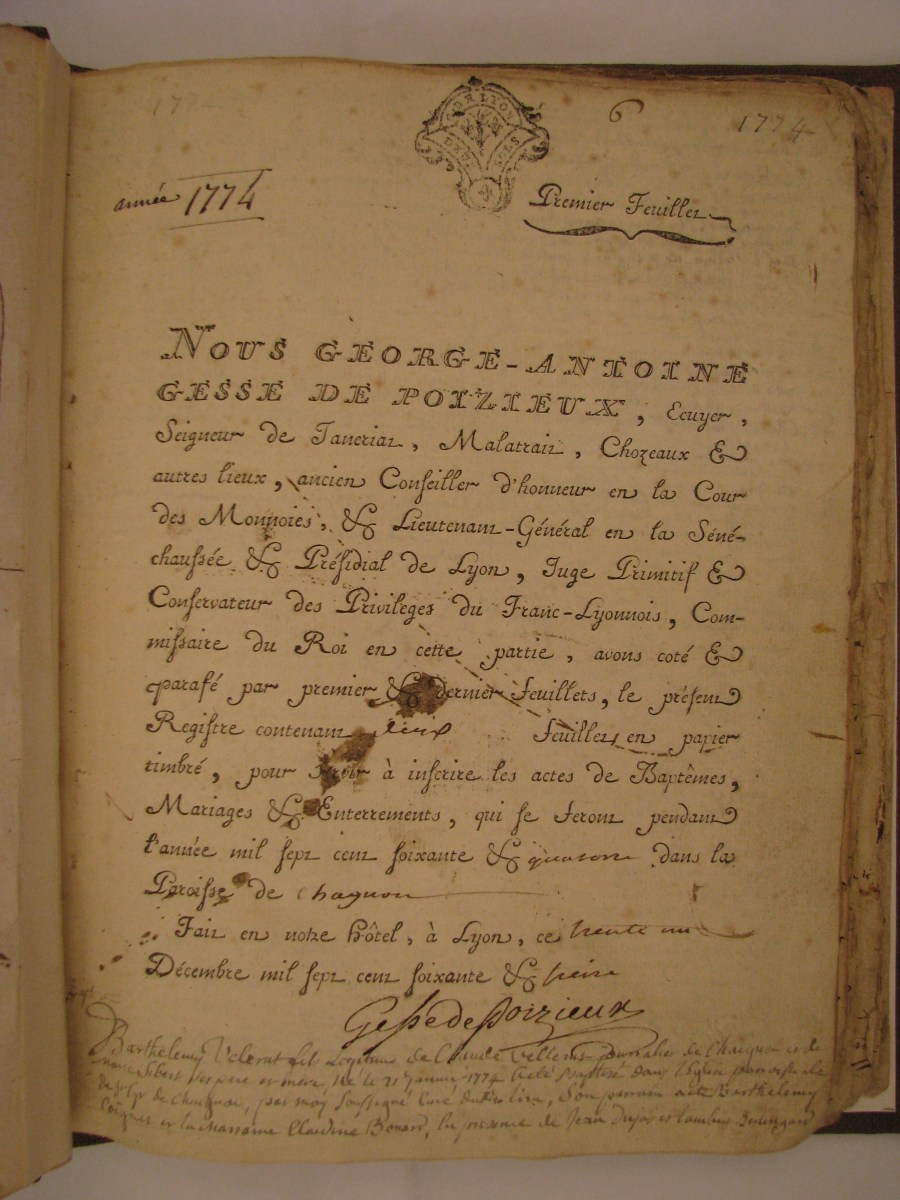 6
1774
année 1774
Premier Feuillet
NOUS GEORGE-ANTOINE
GESSE DE POIZIEUX, Ecuyer,
Seigneur de Taneriat, Malatrait, Chozeaux &
autres lieux, ancien Conseiller d'honneur en la Cour
des Monnoies, & Lieutenant-Général en la Séné-
chaussée & Présidial de Lyon, Juge Primitif &
Conservateur des Privileges du Franc-Lyonnois, Com-
missaire du Roi en cette partie, avons coté &
parafé par premier & dernier feuillets, le présent
Registre contenant feuillets en papier
timbré, pour servir à inscrire les actes de Baptêmes,
Mariages & Enterrements, qui se feront pendant
l'année mil sept cent soixante & quatorze dans la
Paroisse de Chagnon
Fait en notre hôtel, à Lyon, ce trente un
Décembre mil sept cent soixante & treize
Gesse de Poizieux
Barthelemy fils de Claude de Chagnon et de
Sibert ses pere et mere né le 21 janvier 1774 baptisé dans l'église paroissiale
de Chagnon, par moy soussigné curé dudit lieu, son parrain a été Barthelemy
et la marraine Claudine Bonard, en presence de Jean